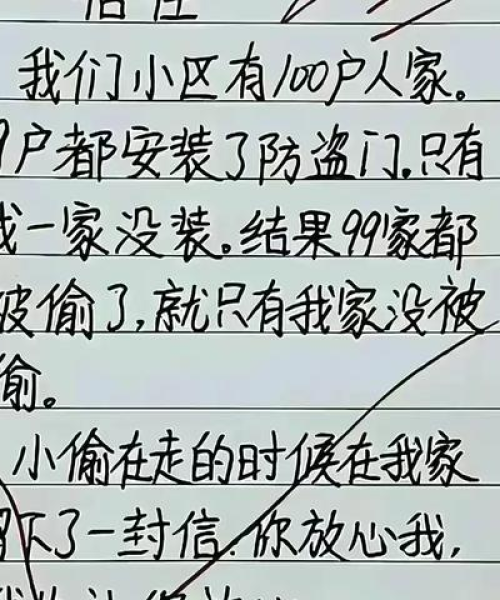 我们小区有100户人家。
9户都安装了防盗门.只有
我一家没装。结果99家都
被偷了,就只有我家没被
偷。
小偷在走的时候在我家
留下了一封信.你放心我,